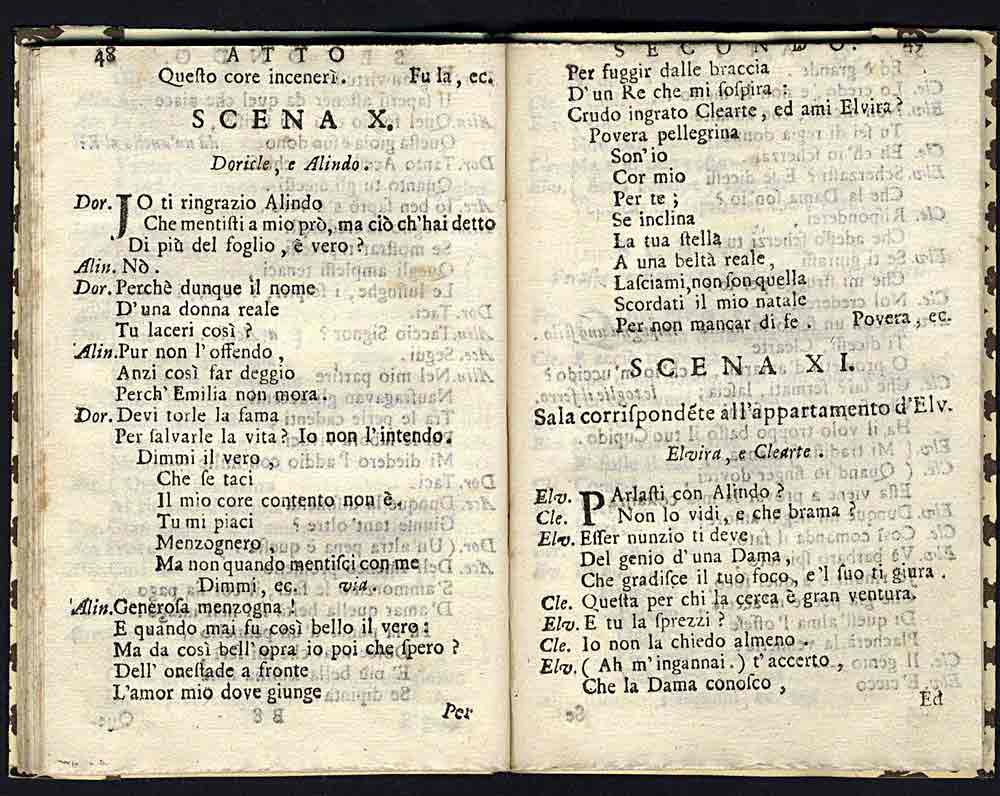 48 ATTO
Queſto core incenerì. Fu la, ec.
SCENA X.
Doricle, e Alindo.
Dor. JO ti ringrazio Alindo
Che mentiſti a mio prò, ma ciò ch'hai detto
Di più del foglio, è vero?
Alin. Nò.
Dor. Perchè dunque il nome
D'una donna reale
Tu laceri così?
Alin. Pur non l'offendo,
Anzi così far deggio
Perch' Emilia non mora.
Dor. Devi torle la fama
Per ſalvarle la vita? Io non l'intendo.
Dimmi il vero,
Che ſe taci
Il mio core contento non è.
Tu mi piaci
Menzognero,
Ma non quando mentiſci con me
Dimmi, ec. via.
Alin. Generoſa menzogna!
E quando mai fu così bello il vero:
Ma da così bell'opra io poi che ſpero?
Dell' oneſtade a fronte
L'amor mio dove giunge
Per
SECONDO.
Per fuggir dalle braccia
D'un Re che mi ſoſpira:
Crudo ingrato Clearte, ed ami Elvira?
Povera pellegrina
Son' io
Cor mio
Per te;
Se inclina
La tua ſtella
A una beltà reale,
Laſciami, non ſon quella
Scordati il mio natale
Per non mancar di fe. Povera, ec.
SCENA XI.
Sala corriſpondẽte all'appartamento d'Elv.
Elvira, e Clearte.
Elv. PArlaſti con Alindo?
Cle. Non lo vidi, e che brama?
Elv. Eſſer nunzio ti deve
Del genio d'una Dama,
Che gradiſce il tuo foco, e'l ſuo ti giura.
Cle. Queſta per chi la cerca è gran ventura.
Elv. E tu la ſprezzi?
Cle. Io non la chiedo almeno.
Elv. (Ah m'ingannai.) t'accerto,
Che la Dama conoſco,
Ed